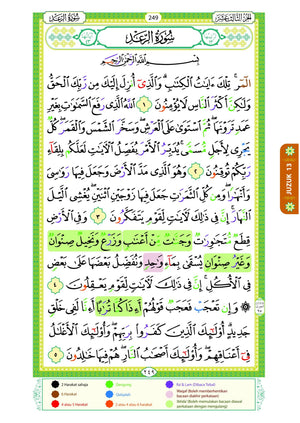 سُورَةُ الرَّعْدِ
249
الجزء الثالث عشر
سُورَةُ الرَّعْدِ
بِسْمِ اللَّهِ الرَّحْمَٰنِ الرَّحِيمِ
الٓمٓرۚ تِلْكَ ءَايَٰتُ ٱلْكِتَٰبِۗ وَٱلَّذِىٓ أُنزِلَ إِلَيْكَ مِن رَّبِّكَ ٱلْحَقُّ
وَلَٰكِنَّ أَكْثَرَ ٱلنَّاسِ لَا يُؤْمِنُونَ ١ ٱللَّهُ ٱلَّذِى رَفَعَ ٱلسَّمَٰوَٰتِ بِغَيْرِ
عَمَدٍ تَرَوْنَهَاۖ ثُمَّ ٱسْتَوَىٰ عَلَى ٱلْعَرْشِۖ وَسَخَّرَ ٱلشَّمْسَ وَٱلْقَمَرَۖ كُلٌّ
يَجْرِى لِأَجَلٍ مُّسَمًّىۚ يُدَبِّرُ ٱلْأَمْرَ يُفَصِّلُ ٱلْءَايَٰتِ لَعَلَّكُم بِلِقَآءِ
رَبِّكُمْ تُوقِنُونَ ٢ وَهُوَ ٱلَّذِى مَدَّ ٱلْأَرْضَ وَجَعَلَ فِيهَا رَوَٰسِىَ
وَأَنْهَٰرًاۖ وَمِن كُلِّ ٱلثَّمَرَٰتِ جَعَلَ فِيهَا زَوْجَيْنِ ٱثْنَيْنِۖ يُغْشِى ٱلَّيْلَ
ٱلنَّهَارَۚ إِنَّ فِى ذَٰلِكَ لَءَايَٰتٍ لِّقَوْمٍ يَتَفَكَّرُونَ ٣ وَفِى ٱلْأَرْضِ
قِطَعٌ مُّتَجَٰوِرَٰتٌ وَجَنَّٰتٌ مِّنْ أَعْنَٰبٍ وَزَرْعٌ وَنَخِيلٌ صِنْوَانٌ
وَغَيْرُ صِنْوَانٍ يُسْقَىٰ بِمَآءٍ وَٰحِدٍ وَنُفَضِّلُ بَعْضَهَا عَلَىٰ بَعْضٍ
فِى ٱلْأُكُلِۚ إِنَّ فِى ذَٰلِكَ لَءَايَٰتٍ لِّقَوْمٍ يَعْقِلُونَ ٤
وَإِن تَعْجَبْ فَعَجَبٌ قَوْلُهُمْ أَءِذَا كُنَّا تُرَٰبًا أَءِنَّا لَفِى خَلْقٍ
جَدِيدٍۗ أُو۟لَٰٓئِكَ ٱلَّذِينَ كَفَرُوا۟ بِرَبِّهِمْۖ وَأُو۟لَٰٓئِكَ ٱلْأَغْلَٰلُ
فِىٓ أَعْنَاقِهِمْۖ وَأُو۟لَٰٓئِكَ أَصْحَٰبُ ٱلنَّارِۖ هُمْ فِيهَا خَٰلِدُونَ ٥
٢٤٩
JUZUK 13
2 Harakat sahaja
6 Harakat
4 atau 5 Harakat
Dengung
Qalqalah
2 atau 4 atau 6 harakat